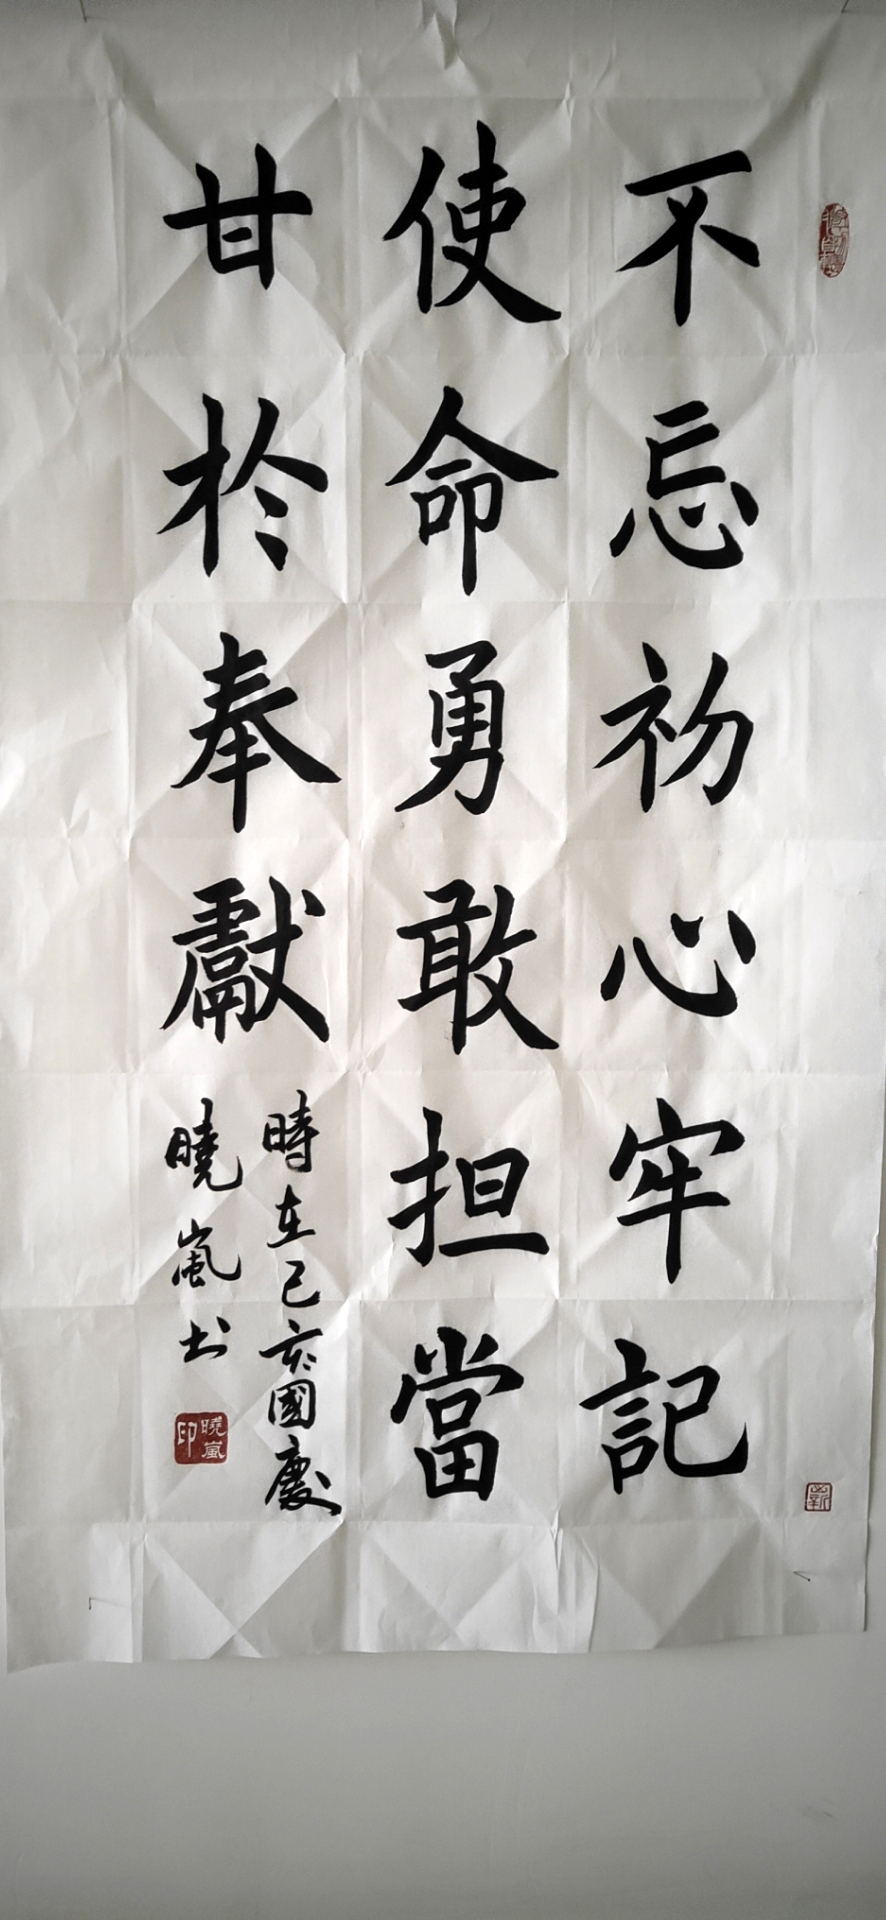 不忘初心牢記
使命勇敢担當
甘於奉獻
時在己亥國慶
曉嵐書
曉嵐印